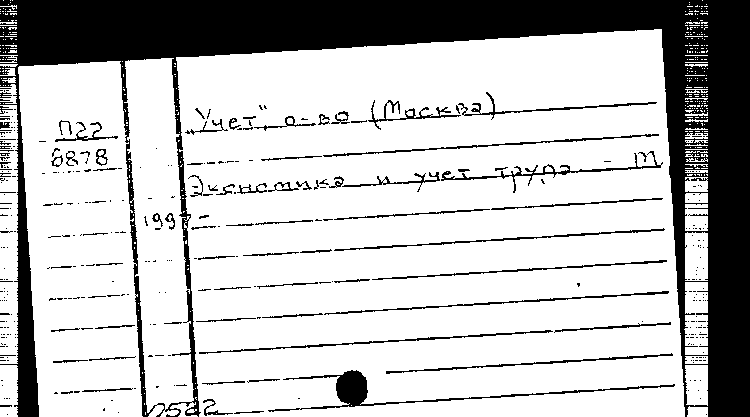 „Учет", о-во (Москва)
П22
6878
Экономика и учет труда - М
1997-